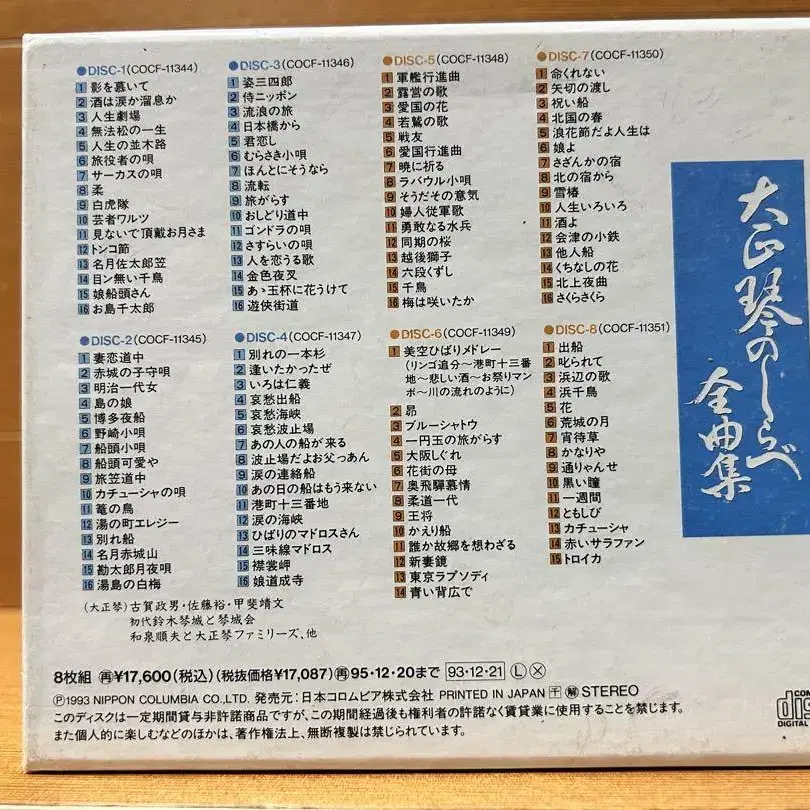 ●DISC-1(COCF-11344)
1 影を慕いて
2 酒は涙か溜息か
3 人生劇場
4 無法松の一生
5 人生の並木路
6 旅役者の唄
7 サーカスの唄
8 柔
9 白虎隊
10 芸者ワルツ
11 見ないで頂戴お月さま
12 トンコ節
13 名月佐太郎笠
14 目ン無い千鳥
15 娘船頭さん
16 お島千太郎
●DISC-2(COCF-11345)
1 妻恋道中
2 赤城の子守唄
3 明治一代女
4 島の娘
5 博多夜船
6 野崎小唄
7 船頭小唄
8 船頭可愛や
9 旅笠道中
10 カチューシャの唄
11 篭の鳥
12 湯の町エレジー
13 別れ船
14 名月赤城山
15 勘太郎月夜唄
16 湯島の白梅
●DISC-3(COCF-11346)
1 姿三四郎
2 侍ニッポン
3 流浪の旅
4 日本橋から
5 君恋し
6 むらさき小唄
7 ほんとにそうなら
8 流転
9 旅がらす
10 おしどり道中
11 ゴンドラの唄
12 さすらいの唄
13 人を恋うる歌
14 金色夜叉
15 あゝ玉杯に花うけて
16 遊侠街道
●DISC-4(COCF-11347)
1 別れの一本杉
2 逢いたかったぜ
3 いろは仁義
4 哀愁出船
5 哀愁海峡
6 哀愁波止場
7 あの人の船が来る
8 波止場だよお父っあん
9 涙の連絡船
10 あの日の船はもう来ない
11 港町十三番地
12 涙の海峡
13 ひばりのマドロスさん
14 三味線マドロス
15 襟裳岬
16 娘道成寺
●DISC-5(COCF-11348)
1 軍艦行進曲
2 露営の歌
3 愛国の花
4 若鷲の歌
5 戦友
6 愛国行進曲
7 暁に祈る
8 ラバウル小唄
9 そうだその意気
10 婦人従軍歌
11 勇敢なる水兵
12 同期の桜
13 越後獅子
14 六段くずし
15 千鳥
16 梅は咲いたか
●DISC-6(COCF-11349)
1 美空ひばりメドレー
(リンゴ追分〜港町十三番
地〜悲しい酒〜お祭りマン
ボ〜川の流れのように)
2 昴
3 ブルーシャトウ
4 一円玉の旅がらす
5 大阪しぐれ
6 花街の母
7 奥飛騨慕情
8 柔道一代
9 王将
10 かえり船
11 誰か故郷を想わざる
12 新妻鏡
13 東京ラプソディ
14 青い背広で
●DISC-7(COCF-11350)
1 命くれない
2 矢切の渡し
3 祝い船
4 北国の春
5 浪花節だよ人生は
6 娘よ
7 さざんかの宿
8 北の宿から
9 雪椿
10 人生いろいろ
11 酒よ
12 会津の小鉄
13 他人船
14 くちなしの花
15 北上夜曲
16 さくらさくら
●DISC-8(COCF-11351)
1 出船
2 叱られて
3 浜辺の歌
4 浜千鳥
5 花
6 荒城の月
7 宵待草
8 かなりや
9 通りゃんせ
10 黒い瞳
11 一週間
12 ともしび
13 カチューシャ
14 赤いサラファン
15 トロイカ
大正琴のしらべ
全曲集
(大正琴)古賀政男・佐藤裕・甲斐靖文
初代鈴木琴城と琴城会
和泉順夫と大正琴ファミリーズ、他
8枚組 再¥17,600(税込)(税抜価格¥17,087)再95・12・20まで 93・12・21 Ⓛ Ⓧ
Ⓟ1993 NIPPON COLUMBIA CO.,LTD. 発売元:日本コロムビア株式会社 PRINTED IN JAPAN STEREO
このディスクは一定期間貸与非許諾商品ですが、この期間経過後も権利者の許諾なく賃貸業に使用することを禁じます。
また個人的に楽しむなどのほかは、著作権法上、無断複製は禁じられています。